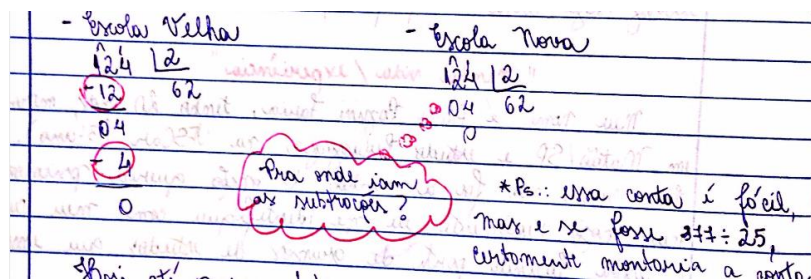 - Escola Velha
124 |2
-12 62
04
- 4
0
- Escola Nova
124 |2
04 62
0
Pra onde iam
as subtrações?
*Ps.: essa conta é fácil,
mas e se fosse 377÷25,
certamente montaria a conta
até